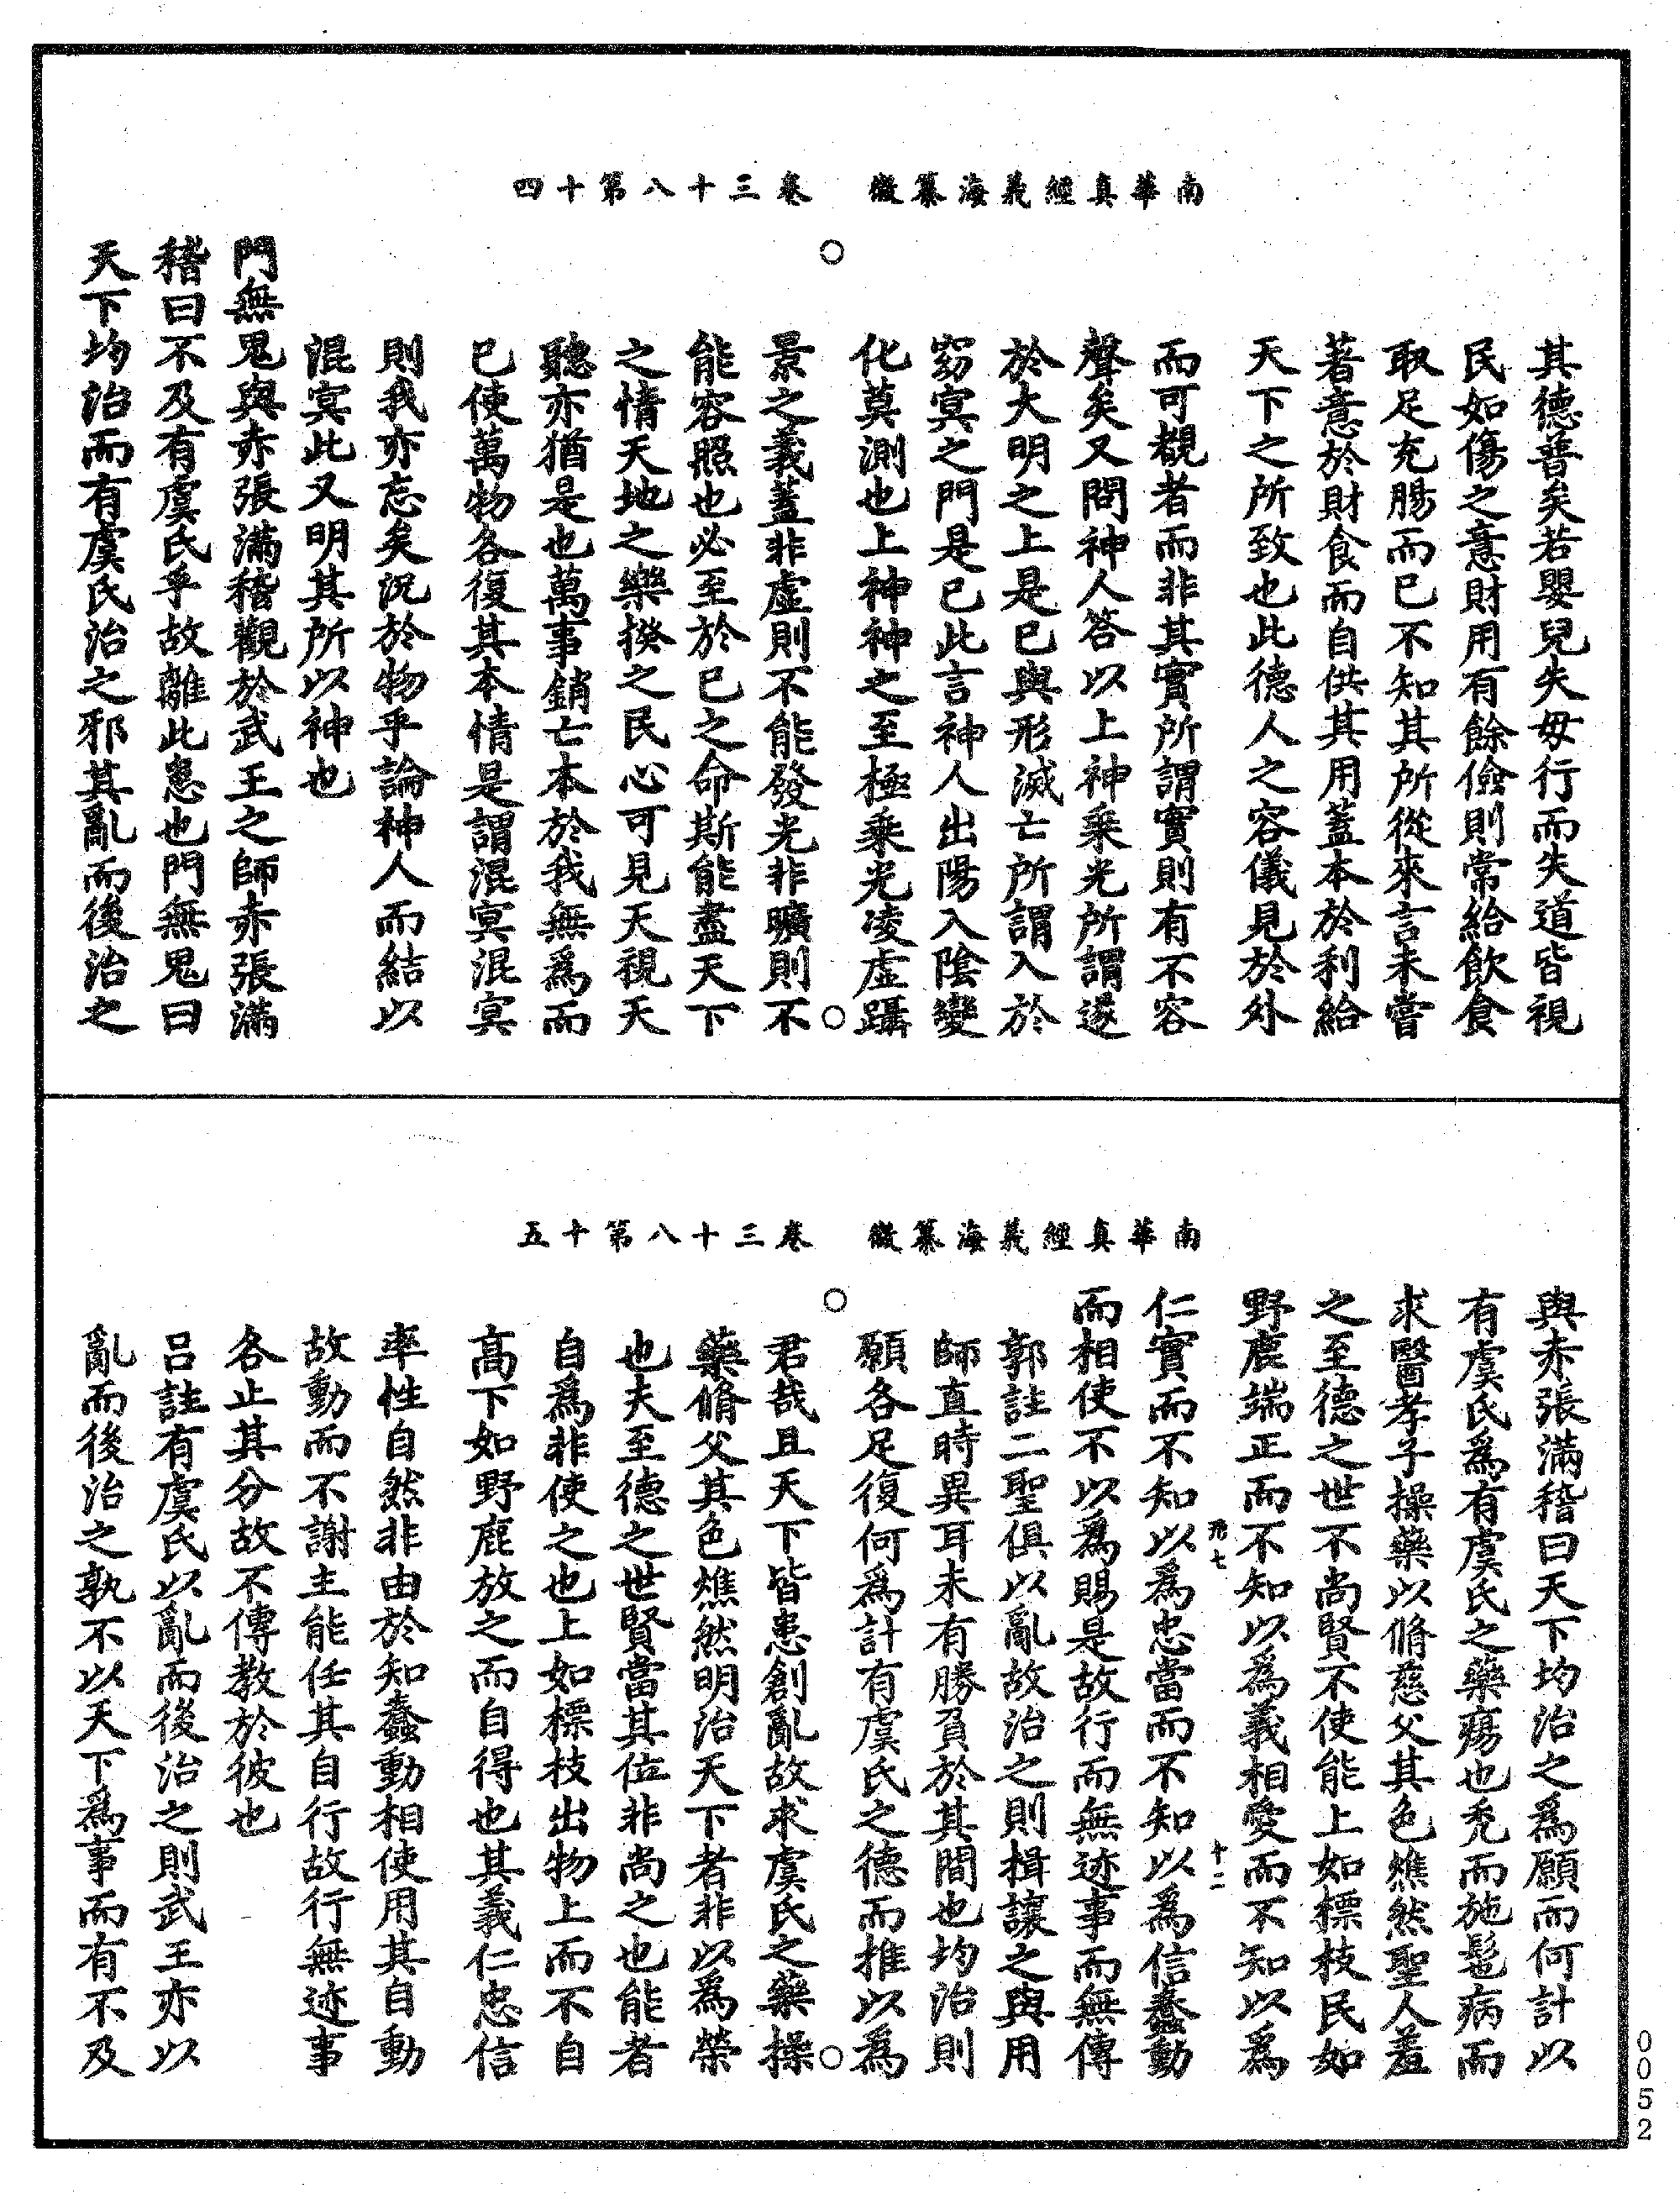 南華真經義海纂微　卷三十八第十四
其德普矣若嬰兒失母行而失道皆視
民如傷之意財用有餘儉則常給飲食
取足充腸而已不知其所從來言未嘗
著意於財食而自供其用蓋本於利給
天下之所致也此德人之容儀見於外
而可覩者而非其實所謂實則有不容
聲矣又問神人答以上神乘光所謂遂
於大明之上是已與形滅亡所謂入於
窈冥之門是已此言神人出陽入陰變
化莫測也上神神之至極乘光凌虛躡
景之義蓋非虛則不能發光非曠則不
能容照也必至於已之命斯能盡天下
之情天地之樂揆之民心可見天視天
聽亦猶是也萬事銷亡本於我無爲而
已使萬物各復其本情是謂混冥混冥
則我亦忘矣況於物乎論神人而結以
混冥此又明其所以神也
門無鬼與赤張滿稽觀於武王之師赤張滿
稽曰不及有虞氏乎故離此患也門無鬼曰
天下均治而有虞氏治之邪其亂而後治之
南華真經義海纂微　卷三十八第十五
與赤張滿稽曰天下均治之爲願而何計以
有虞氏爲有虞氏之藥瘍也禿而施髢病而
求醫孝子操藥以脩慈父其色燋然聖人羞
之至德之世不尚賢不使能上如標枝民如
野鹿端正而不知以爲義相愛而不知以爲
仁實而不知以爲忠當而不知以爲信蠢動
而相使不以爲賜是故行而無迹事而無傳
郭註二聖俱以亂故治之則揖讓之與用
師直時異耳未有勝負於其間也均治則
願各足復何爲計有虞氏之德而推以爲
君哉且天下皆患創亂故求虞氏之藥操
藥脩父其色燋然明治天下者非以爲榮
也夫至德之世賢當其位非尚之也能者
自爲非使之也上如標枝出物上而不自
高下如野鹿放之而自得也其義仁忠信
率性自然非由於知蠢動相使用其自動
故動而不謝主能任其自行故行無迹事
各止其分故不傳教於彼也
呂註有虞氏以亂而後治之則武王亦以
亂而後治之孰不以天下爲事而有不及
十二
0052